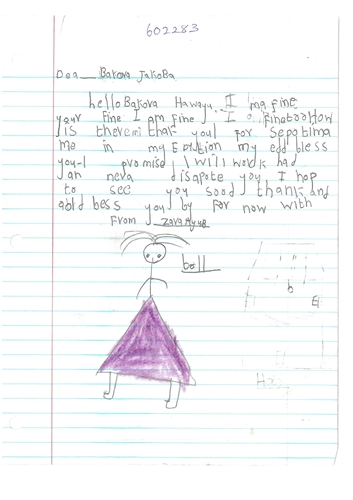 602283
Dea__ Bakova Jakoba
hello Bakova Hawayu I ma fine
your Fine I am Fine I
is there mi that you! For
me in my my bless
you-I promise I will work had
an neva disapote you I hop
to see you sood thank and
bess you by for now with
From Zava Ayub
ball
b
E
H